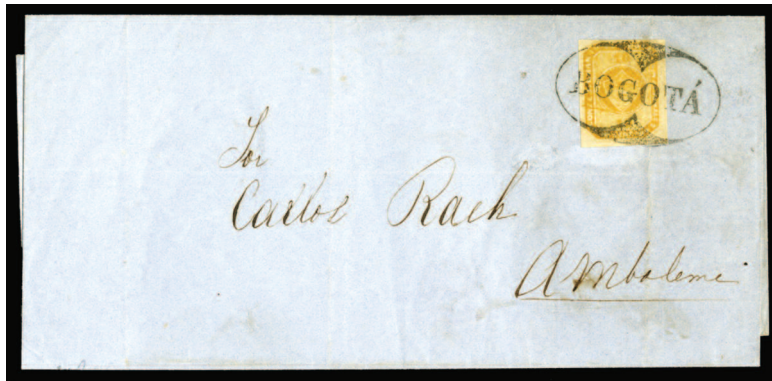 BOGOTÁ
Sor
Carlos Rach
Ambalema